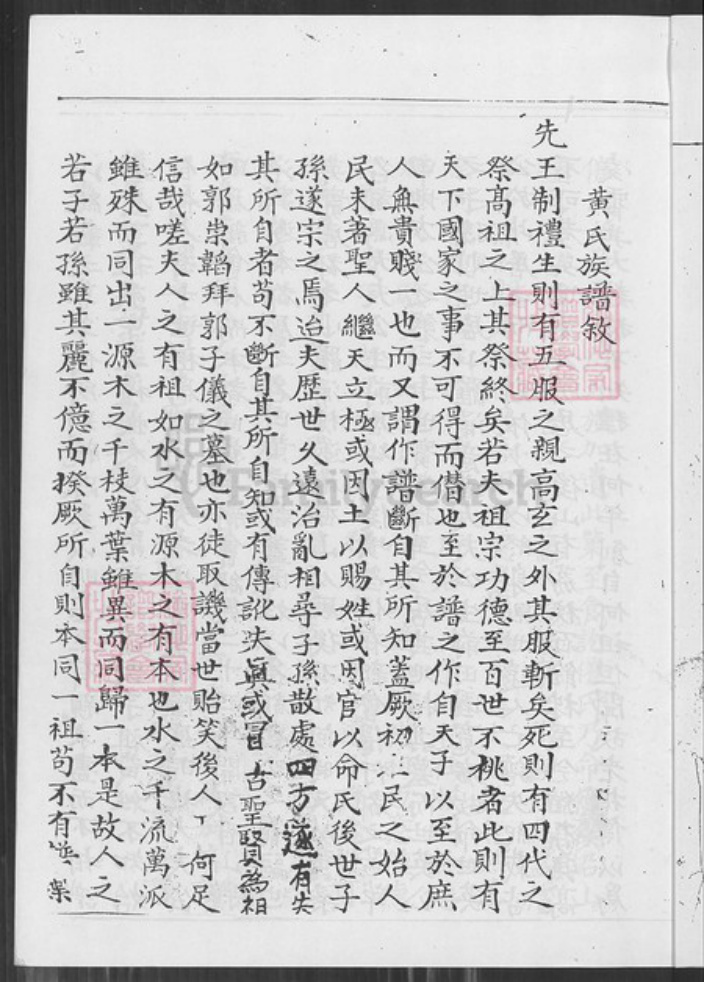 黃氏族譜敘
先王制禮生則有五服之親高玄之外其服斬矣死則有四代之
祭髙祖之上其祭終矣若夫祖宗功德至百世不桃者此則有
天下國家之事不可得而僭也至於譜之作自天子以至於庶
人無貴賤一也而又謂作譜斷自其所知蓋厥初民之始人
民未著聖人繼天立極或因土以賜姓或因官以命氏後世子
孫遂宗之焉迨夫歴世久遠治亂相尋子孫散處四方遂有失
其所自者苟不斷自其所自知或有傳訛失眞或冒古聖賢為祖
如郭崇韜拜郭子儀之墓也亦徒取譏當世貽笑後人何足
信哉嗟夫人之有祖如水之有源木之有本也水之千流萬派
雖殊而同出一源木之千枝萬葉雖異而同歸一本是故人之
若子若孫雖其麗不億而揆厥所自則本同一祖苟不有
FamilySearch